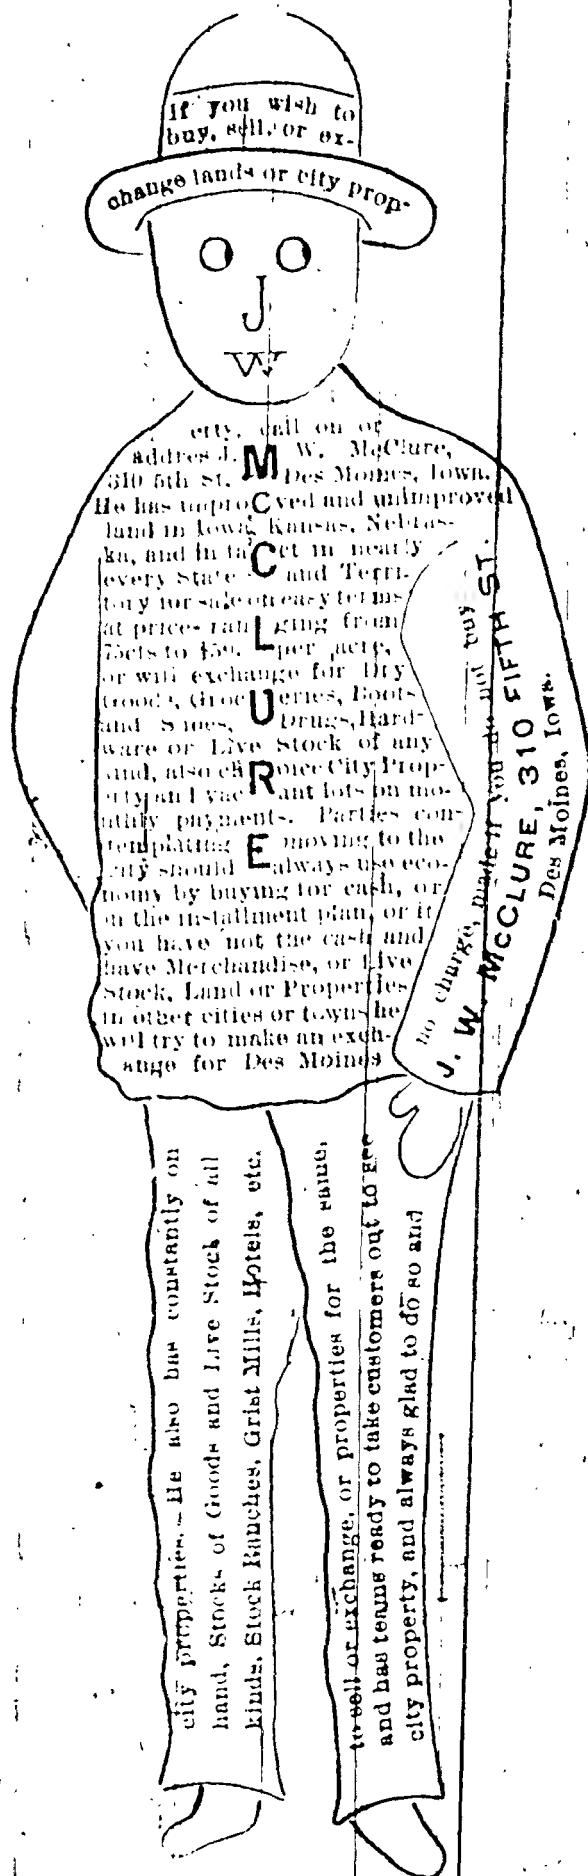 If you wish to
buy, sell, or ex-
change lands or city prop-
J
W
erty, call on or
addres J. W. McClure,
310 5th St. Des Moines, Iowa.
He has improved and unimproved
land in Iowa, Kansas, Nebras-
ka, and in fact in nearly
every State and Terri-
tory for sale on easy terms
at prices ranging from
75cts to $50. per acre,
or will exchange for Dry
Goods, Groceries, Boots
and Shoes, Drugs, Hard-
ware or Live Stock of any
kind, also choice City Prop-
erty and vacant lots on mo-
nthly payments. Parties con-
templating moving to the
city should always use eco-
nomy by buying for cash, or
on the installment plan, or if
you have not the cash and
have Merchandise, or Live
Stock, Land or Properties
in other cities or towns he
will try to make an exch-
ange for Des Moines
McCLURE
city properties.—He also has constantly on
hand, Stocks of Goods and Live Stock of all
kinds, Stock Ranches, Grist Mills, Hotels, etc.
to sell or exchange, or properties for the same,
and has teams ready to take customers out to see
city property, and always glad to do so and
no charge, made if you do not buy
J. W. McCLURE, 310 FIFTH ST.
Des Moines, Iowa.